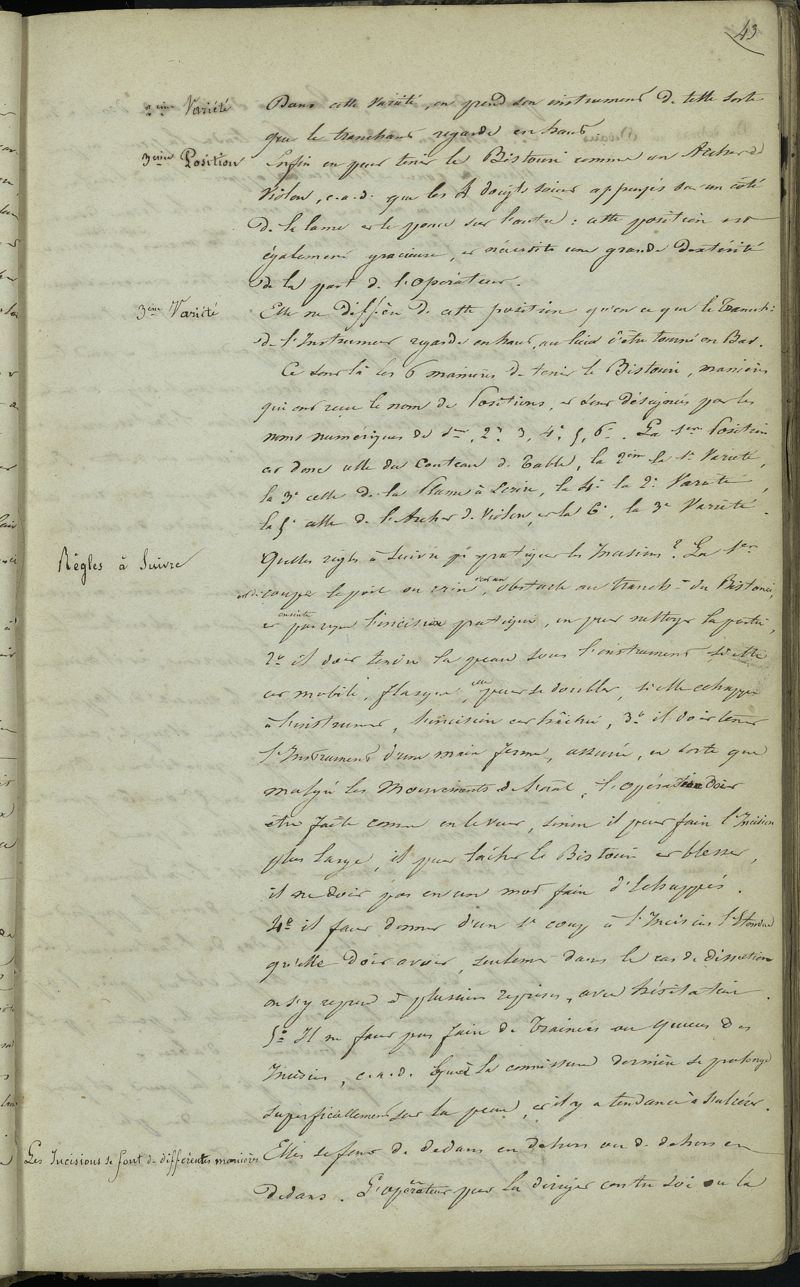 43
2ème Variété Dans cette variété, on prend son instrument de telle sorte
que le tranchant regarde en haut
3ème Position Enfin on peut tenir le Bistouri comme un Archet de
Violon, c.a.d. que les 4 doigts soient appuyés sur un côté
de la lame et le pouce sur l'autre : cette position est
également gracieuse, et nécessite une grande dextérité
de la part de l'opérateur.
3ème Variété Elle ne diffère de cette position qu'en ce que le Tranch.
de l'Instrument regarde en haut, au lieu d'être tourné en Bas.
Ce sont là les 6 manières de tenir le Bistouri, manières
qui ont reçu le nom de Positions, et sont désignées par les
noms numériques de 1er, 2e, 3, 4e, 5, 6e. La 1ère Position
est donc celle du Couteau de Table, la 2ème la 1e Variété,
la 3e celle de la Plume à Ecrire, la 4e la 2e Variété,
la 5e celle de l'Archet de Violon, et la 6e, la 3e Variété.
Règles à Suivre Quelles règles à suivre pr pratiquer les Incisions ? La 1ère
coupe le poil ou crin, obstacle au tranch.t du Bistouri,
et ensuite l'incision pratiquée, on peut nettoyer la partie,
2e il doit tendre la peau sous l'instrument si elle
est mobile, flasque, elle peut se doubler, si elle échappe
à l'instrument, l'incision est hâchée, 3e il doit tenir
l'Instrument d'une main ferme, assurée, en sorte que
malgré les Mouvements de l'anal, l'opération doit
être faite comme on le veut, sinon il peut faire l'Incision
plus large, il peut lâcher le Bistouri et blesser,
il ne doit pas en un mot faire d'Echappés.
4e il faut donner d'un 1er coup à l'Incision l'étendue
qu'elle doit avoir, seulement dans le cas de dissection
on s'y reprend à plusieurs reprises, avec hésitation.
5e Il ne faut pas faire de Trainées ou Queues des
Incisions, c.a.d. Quand la commissure dernière se prolonge
superficiellement sur la peau, et il y a tendance à s'ulcérer.
Les Incisions se font de différentes manières Elles se font de dedans en dehors ou de dehors en
dedans. L'opérateur peut la diriger contre soi ou la